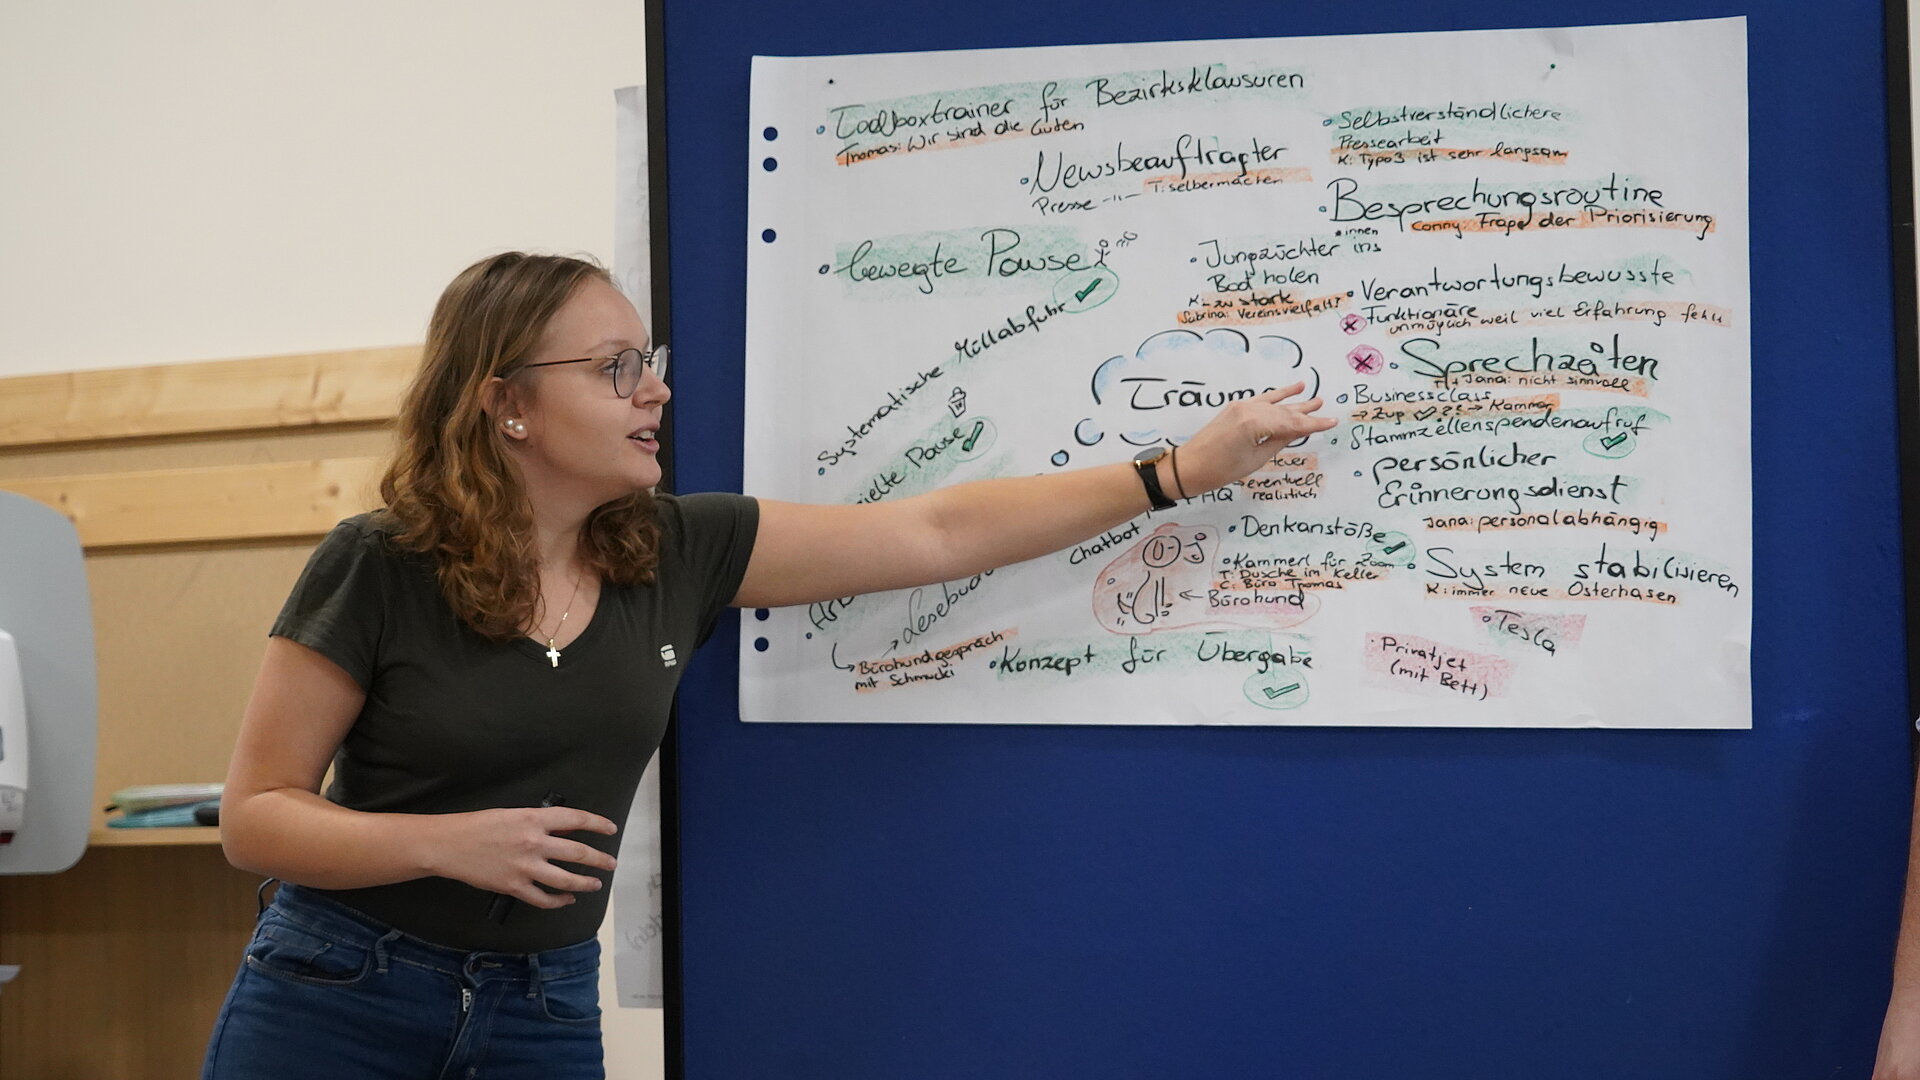 • Toolboxtrainer für Bezirksklausuren
Thomas: Wir sind die Guten
• Newsbeauftragter
Presse -"- T: selbermachen
• bewegte Pause
• Systematische Müllabfuhr
ielte Pause
• Selbstverständlichere
Pressearbeit
K: Typo3 ist sehr langsam
• Besprechungsroutine
Conny: Frage der Priorisierung
*innen
• Jungzüchter ins
Boot holen
K: zu stark
Sabrina: Vereinsvielfalt?
• Verantwortungsbewusste
Funktionäre
unmöglich weil viel Erfahrung fehlt
• Sprechzeiten
Jana: nicht sinnvoll
Träume
• Businessclass
→ Zug → Kammer
• Stammzellenspendenaufruf
• persönlicher
Erinnerungsdienst
Jana: personalabhängig
teuer
FAQ eventuell
realistisch
Chatbot
• Denkanstöße
• Kammerl für Zoom
T: Dusche im Keller
C: Büro Thomas
← Bürohund
• System stabilisieren
K: immer neue Osterhasen
→ Lesebuch
Bürohundgespräch
mit Schmucki
• Konzept für Übergabe
• Tesla
• Privatjet
(mit Bett)